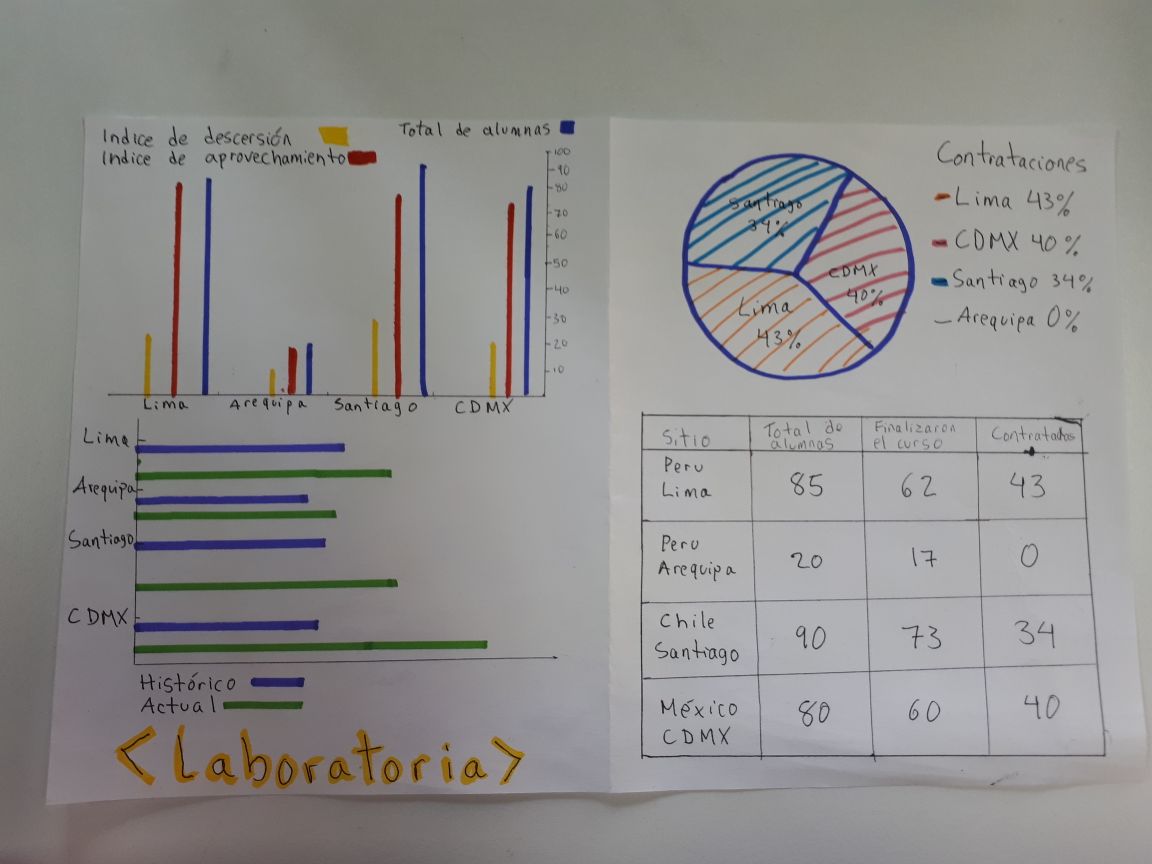 Indice de descersión
Total de alumnas
Indice de aprovechamiento
100
90
80
70
60
50
40
30
20
10
Lima Arequipa Santiago CDMX
Lima
Arequipa
Santiago
CDMX
Histórico
Actual
<Laboratoria>
Santiago
34%
CDMX
40%
Lima
43%
Contrataciones
Lima 43%
CDMX 40%
Santiago 34%
Arequipa 0%
Sitio Total de alumnas Finalizaron el curso Contratadas
Peru Lima 85 62 43
Peru Arequipa 20 17 0
Chile Santiago 90 73 34
México CDMX 80 60 40